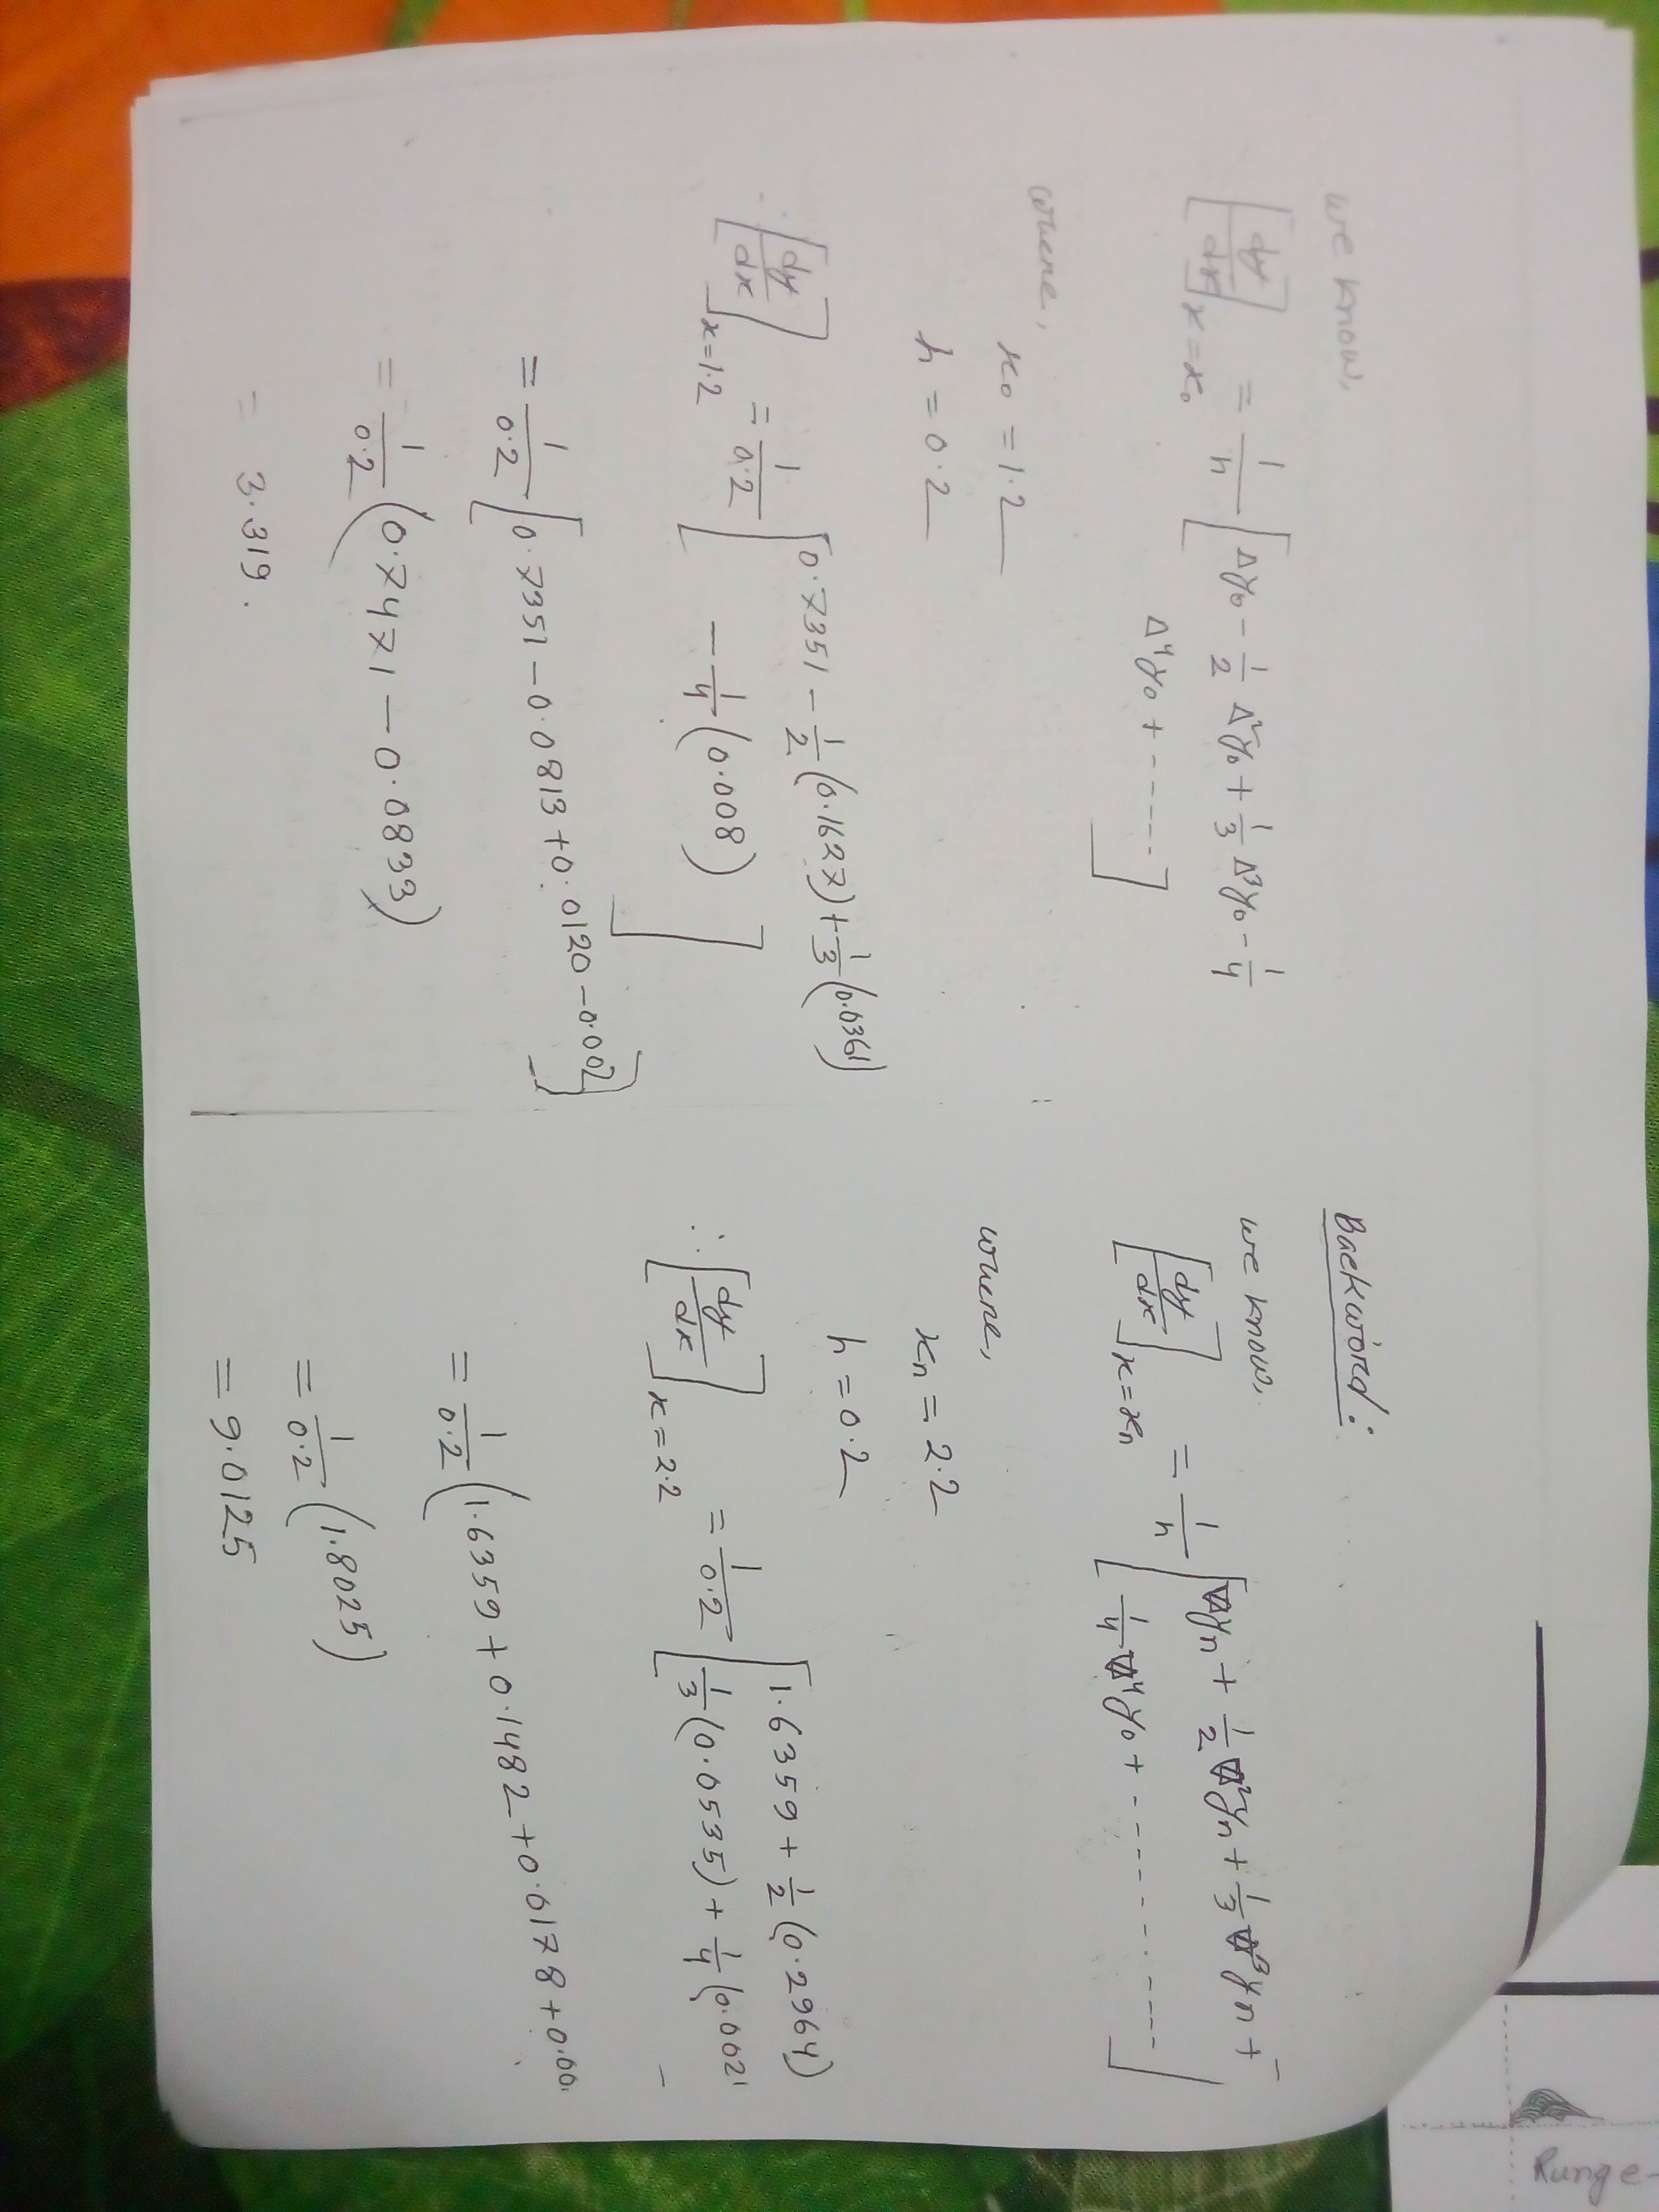 we know,
[dy/dx] x=x₀ = 1/h [Δy₀ - 1/2 Δ²y₀ + 1/3 Δ³y₀ - 1/4
Δ⁴y₀ + ------]
where,
x₀ = 1.2
h = 0.2
∴ [dy/dx] x=1.2 = 1/0.2 [0.7351 - 1/2 (0.1627) + 1/3 (0.0361)
- 1/4 (0.008)]
= 1/0.2 [0.7351 - 0.0813 + 0.0120 - 0.002]
= 1/0.2 (0.7471 - 0.0833)
= 3.319.
Backword:
we know,
[dy/dx] x=xₙ = 1/h [∇yₙ + 1/2 ∇²yₙ + 1/3 ∇³yₙ +
1/4 ∇⁴y₀ + ------------]
where,
xₙ = 2.2
h = 0.2
∴ [dy/dx] x=2.2 = 1/0.2 [1.6359 + 1/2 (0.2964)
1/3 (0.0535) + 1/4 (0.002
= 1/0.2 (1.6359 + 0.1482 + 0.0178 + 0.00
= 1/0.2 (1.8025)
= 9.0125
Runge-